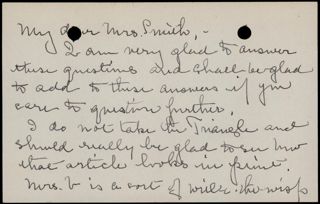 My dear Mrs. Smith,-
I am very glad to answer
these questions and shall be glad
to add to these answers if you
care to question further.
I do not take the Triangle and
should really be glad to see how
that article looks in print.
Mrs. V is a sort of will-o-the-wisp